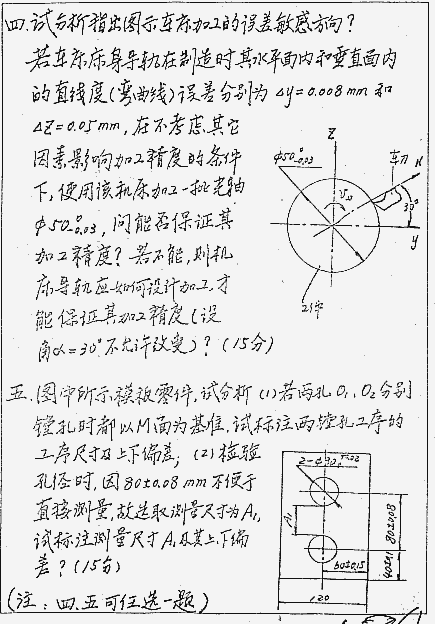 四.试分析指出图示车床加工的误差敏感方向?
若车床床身导轨在制造时其水平面内和垂直面内
的直线度(弯曲线)误差分别为 Δy=0.008mm 和
ΔZ=0.05mm, 在不考虑其它
因素影响加工精度的条件
下, 使用该机床加工一批光轴
φ50⁰₋₀.₀₃, 问能否保证其
加工精度? 若不能, 则机
床导轨应如何设计加工, 才
能保证其加工精度(设
角α=30°不允许改变)? (15分)
Z
φ50⁰₋₀.₀₃
车刀
30°
y
工件
五.图中所示模板零件, 试分析(1)若两孔O₁、O₂分别
镗孔时都以M面为基准, 试标注两镗孔工序的
工序尺寸及上下偏差; (2)检验
孔径时, 因80±0.08mm不便于
直接测量, 故选取测量尺寸为A₁,
试标注测量尺寸A₁及其上下偏
差? (15分)
A₁
80±0.08
40±0.1
60±0.15
120
(注: 四.五可任选一题)